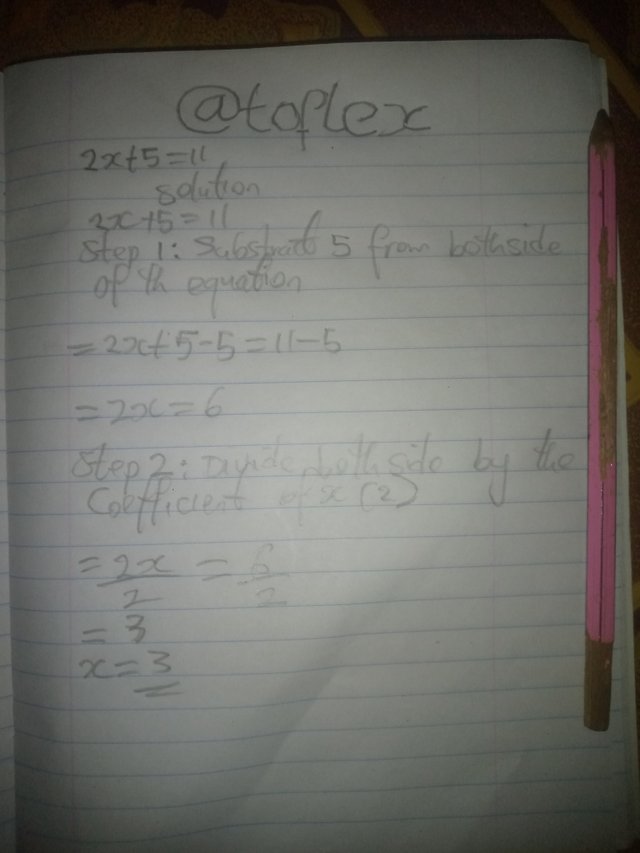 @toflex
2x+5=11
solution
2x+5=11
Step 1: Substract 5 from bothside
of th equation
=2x+5-5=11-5
=2x=6
Step 2: Divide both side by the
Coefficient of x (2)
= 2x/2 = 6/2
= 3
x=3